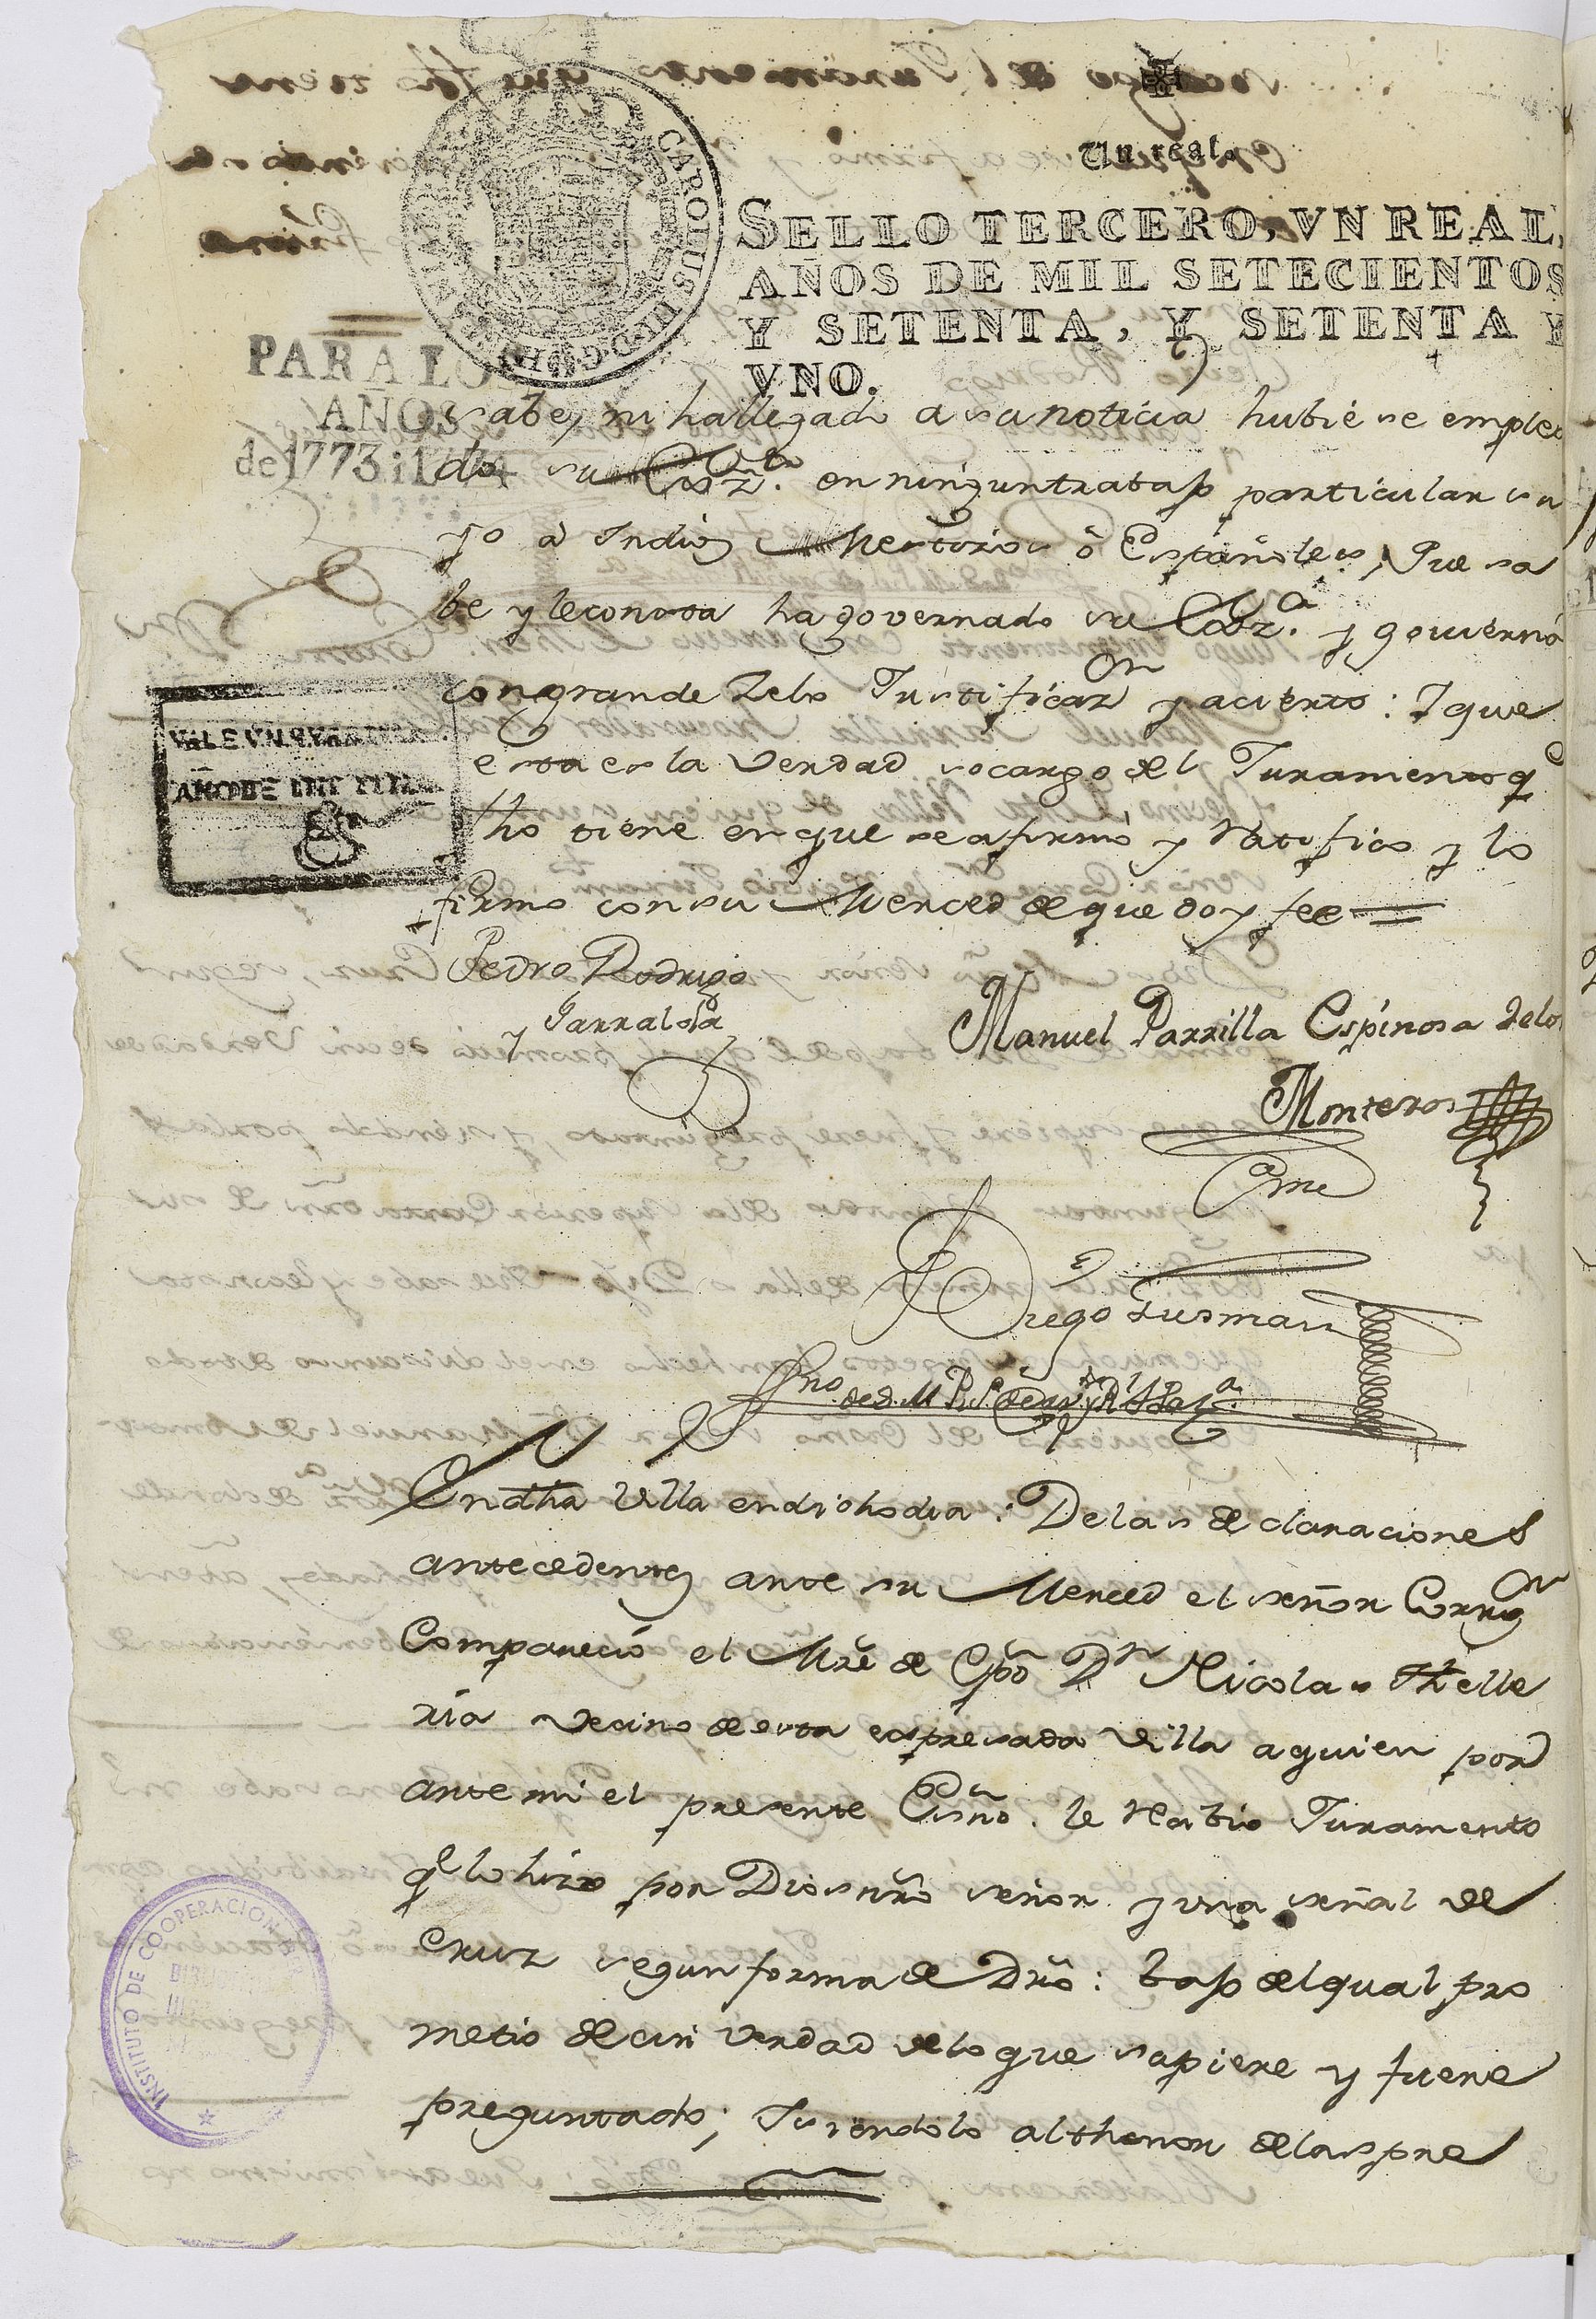 Un real.
SELLO TERCERO, VN REAL,
AÑOS DE MIL SETECIENTOS
Y SETENTA, Y SETENTA Y
VNO.
CAROLUS III D G HISPANIAR
PARA LOS
AÑOS
de 1773 i 1774
sabe, ni hallegado a su noticia hubiése emplea
do su Exz.ª en ningun trabajo particular su
yo à Indios Mestizos ò Españoles, Que sa
be y le consta ha governado su Exz.ª y govierna
con grande Zelo Justificaz.on y acierto: Y que
esta es la Verdad so cargo del Juramento q.e
fho tiene en que se afirmó y Ratificó y lo
firmó con su Merced de que doy fee =
Pedro Rodrigo
y Garralda
Manuel Parrilla Espinosa delos
Monteros
Ante me
Diego Gusman
Sno de S. M. P.
En dha Villa en dicho dia: De las declaraciones
antecedentes ante su Merced el señor Corrg.or
Compareció el Mre de Cpo Dn Nicolas Thelle
ria vecino de esta expresada Villa a quien por
ante mi el presente Essno. le Recibio Juramento
q.e lo hizo por Dios nro señor y una señal de
Cruz segun forma de Dro: bajo del qual pro
metio decir verdad de lo que supiere y fuere
preguntado; Y siendolo al thenor de las pre
AÑO DE
INSTITUTO DE COOPERACION